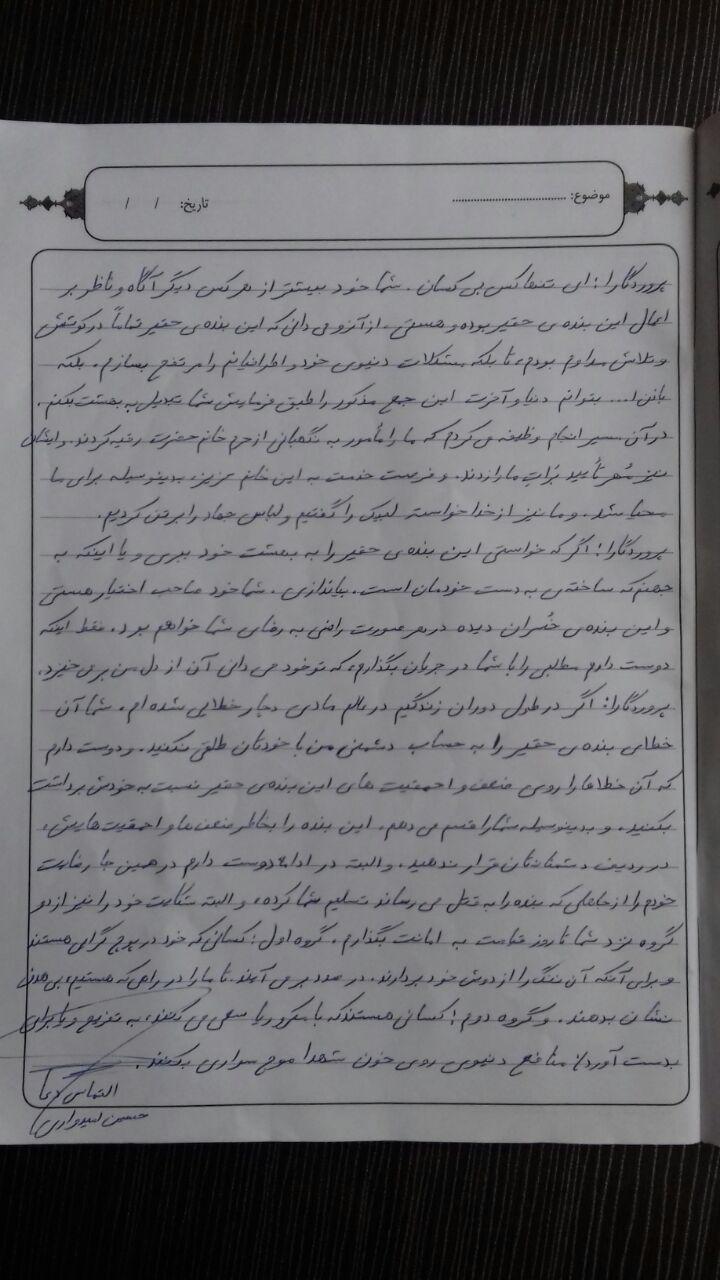 موضوع: ............................ تاریخ: / /
پروردگارا! ای تنها کس بی کسان. شما خود بیشتر از هر کس دیگر آگاه و ناظر بر
اعمال این بنده‌ی حقیر بوده و هستی. از آنرو می دانی که این بنده‌ی حقیر تماماً در کوشش
و تلاش مداوم بودم، تا بلکه مشکلات دنیوی خود و اطرافیانم را مرتفع بسازم. بلکه
باذن ا... بتوانم دنیا و آخرت این جمع مذکور را طبق فرمایش شما تبدیل به بهشت بکنم.
در آن مسیر انجام وظیفه می کردم که ما را مأمور به نگهبانی از حرم خانم حضرت رقیه کردند. و ایشان
نیز مُهر تأیید بَرات ما را زدند. و فرصت خدمت به این خانم عزیز، بدینوسیله برای ما
محیا شد. و ما نیز از خدا خواسته لبیک را گفتیم و لباس جهاد را بر تن کردیم.
پروردگارا! اگر که خواستی این بنده‌ی حقیر را به بهشت خود ببری و یا اینکه به
جهنم که ساخته‌ی به دست خودمان است. بیاندازی. شما خود صاحب اختیار هستی
و این بنده‌ی خُسران دیده در هر صورت راضی به رضای شما خواهم بود. فقط اینکه
دوست دارم مطالبی را با شما در جریان بگذارم، که تو خود می دانی آن از دل من بر می خیزد.
پروردگارا: اگر در طول دوران زندگیم در عالم مادی دچار خطایی شده ام، شما آن
خطای بنده‌ی حقیر را به حساب دشمنی من با خودتان طلقی نکنید. و دوست دارم
که آن خطاها را روی ضعف و احمقیت های این بنده‌ی حقیر نسبت به خودش برداشت
بکنید. و بدینوسیله شما را قسم می دهم. این بنده را بخاطر ضعف ها و احمقیت هایش،
در ردیف دشمنانتان قرار ندهید. و البته در ادامه دوست دارم در همین جا رضایت
خودم را از عاملی که بنده را به قتل می رساند تسلیم شما کرده، و البته شکایت خود را نیز از دو
گروه نزد شما تا روز قیامت به امانت بگذارم. گروه اول! کسانی که خود در پوچ گرای هستند
و برای آنکه آن ننگ را از دوش خود بردارند. در صدد بر می آیند. تا ما را در راهی که هستیم، بی هدف
نشان بدهند. و گروه دوم! کسانی هستند که با مکر و ریا سعی می کنند، به تفریح و یا برای
بدست آوردن منافع دنیوی روی خون شهدا موج سواری بکنند.
التماس دعا
حسین امیدواری